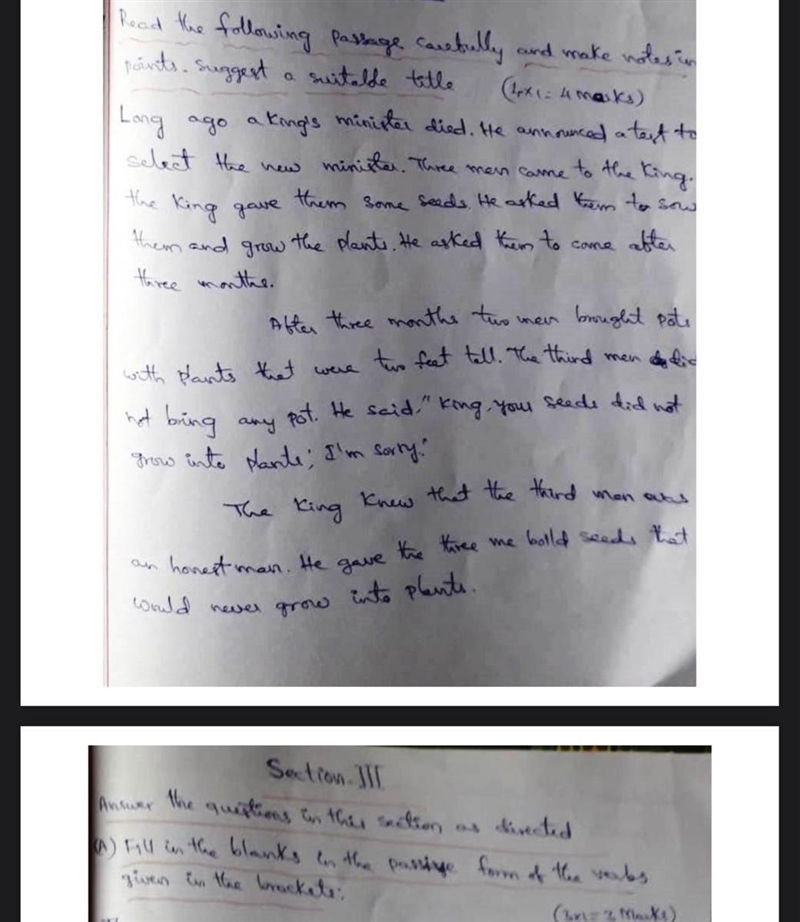 Read the following passage carefully and make notes in
points. Suggest a suitable title (4x1= 4 marks)
Long ago a King's minister died. He announced a test to
select the new minister. Three men came to the King.
the King gave them some seeds. He asked them to sow
them and grow the plants. He asked them to come after
three months.
After three months two men brought pots
with plants that were two feet tall. The third man did
not bring any pot. He said, "King, your seeds did not
grow into plants; I'm sorry."
The King knew that the third man was
an honest man. He gave the three me boild seeds that
would never grow into plants.
Section-III
Answer the questions in this section as directed
(A) Fill in the blanks in the passive form of the verbs
given in the brackets:
(3x1= 3 Marks)